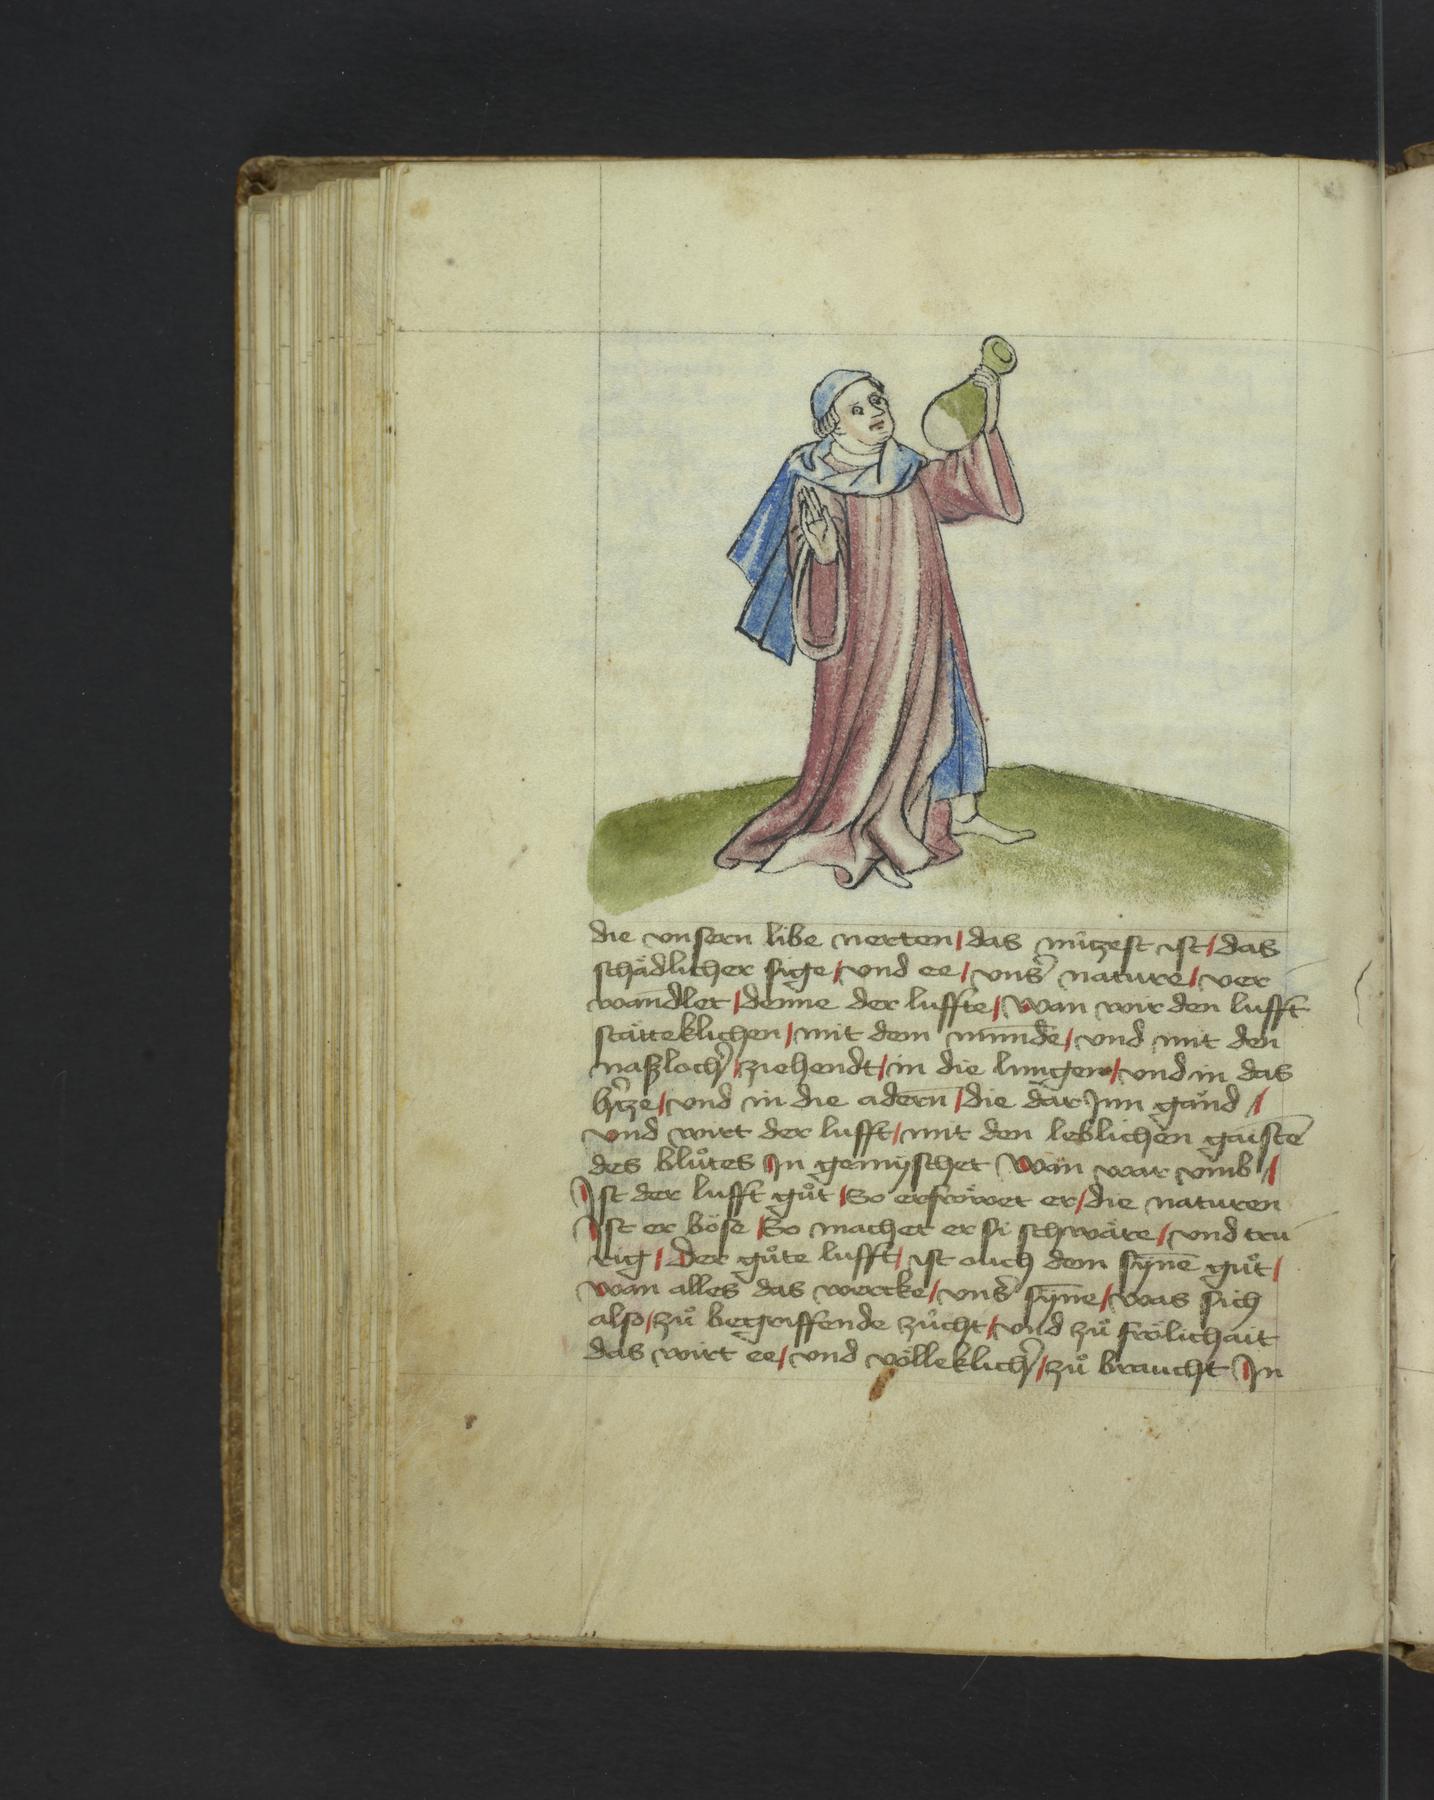 die vnsern libe nerten / das nüczest ist / das
schädlicher sige / vnd ee / vnsˀ nature / ver
wandlet / denne der luffte / wan wir den lufft
stätteklichen / mit dem munde / vnd mit den
naßlochˀ / ziehendt / in die lungen / vnd in das
hˀtze / vnd in die adern̄ / die dar Jnn gand /
vnd wirt der lufft / mit den leblichen gaistē
des blůtes Jn gemyschet Wan war vmb /
Jst der lufft gůt / So erfröwet er / die naturen
Jst er böse / So machet er si schwäre / vnd tru
rig / Der gůte lufft / ist ouch dem synē gůt /
wan alles das wercke / vnsˀ syn̄e / was sich
also / zů begriffende zücht / vnd zů frölichait
das wirt ee / vnd völleklichˀ / zů braucht Jn